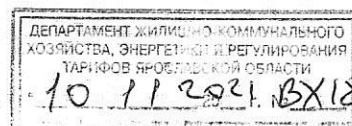 ДЕПАРТАМЕНТ ЖИЛИЩНО-КОММУНАЛЬНОГО
ХОЗЯЙСТВА, ЭНЕРГЕТИКИ И РЕГУЛИРОВАНИЯ
ТАРИФОВ ЯРОСЛАВСКОЙ ОБЛАСТИ
10 11 2021